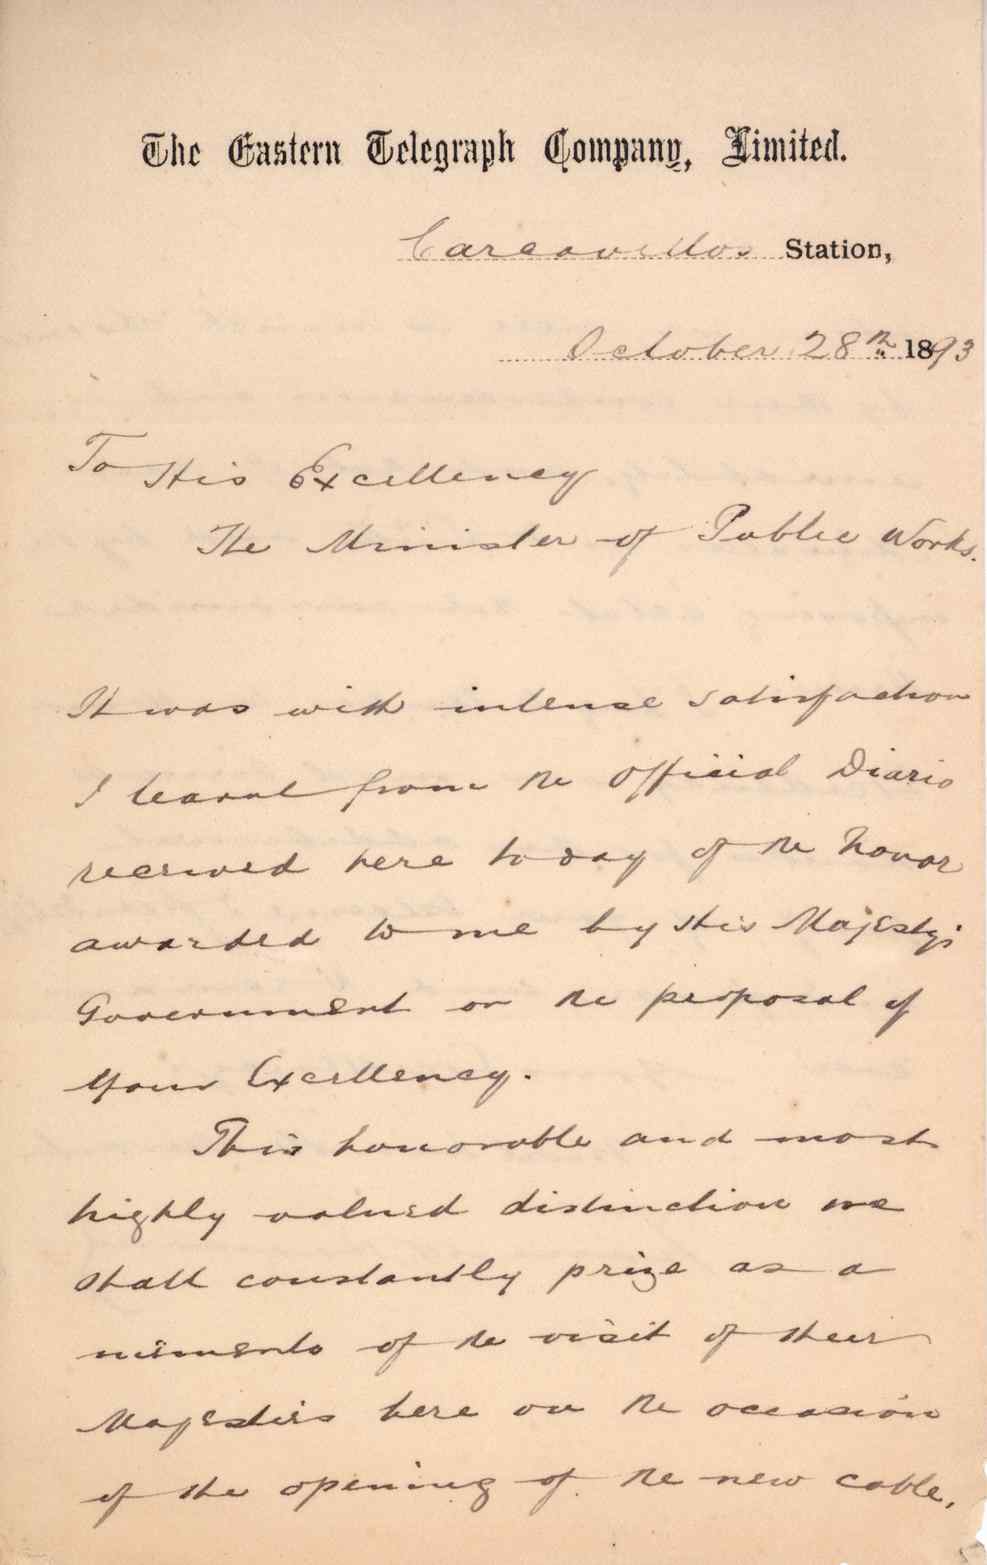 The Eastern Telegraph Company, Limited.
Carcavellos Station,
October 28th 1893
To His Excellency
The Minister of Public Works.
It was with intense satisfaction
I learnt from the Official Diario
received here to day of the honor
awarded to me by His Majesty's
Government on the proposal of
Your Excellency.
This honorable and most
highly valued distinction we
shall constantly prize as a
memento of the visit of their
Majesties here on the occasion
of the opening of the new cable,